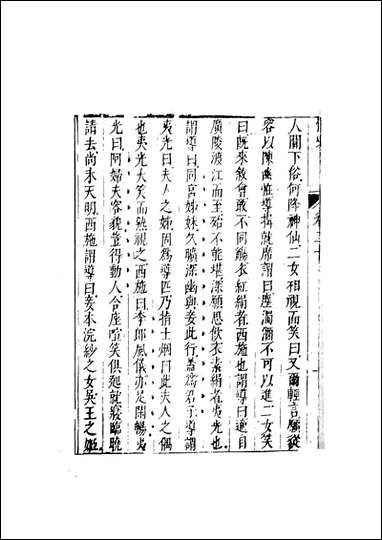 人間下俗何降神仙二女相視而笑曰又爾輕言願從
容以陳幽懷導揖就席謂曰塵濁酒不可以進二女笑
曰既來敘會敢不同觴衣紅絹者西施也謂導曰適自
廣陵渡江而至殆不能堪深願思飲衣素絹者夷光也
謂導曰同宮姊妹久曠深幽與妾此行蓋為君子導謂
夷光曰夫人之姊固為導匹乃指士烟曰此夫人之偶
也夷光大笑而熟視之西施曰李郎風儀亦足閒暢夷
光曰阿婦夫容貌豈得動人合座喧笑俱起就寢臨曉
請去尚未天明西施謂導曰妾本浣紗之女吳王之姬